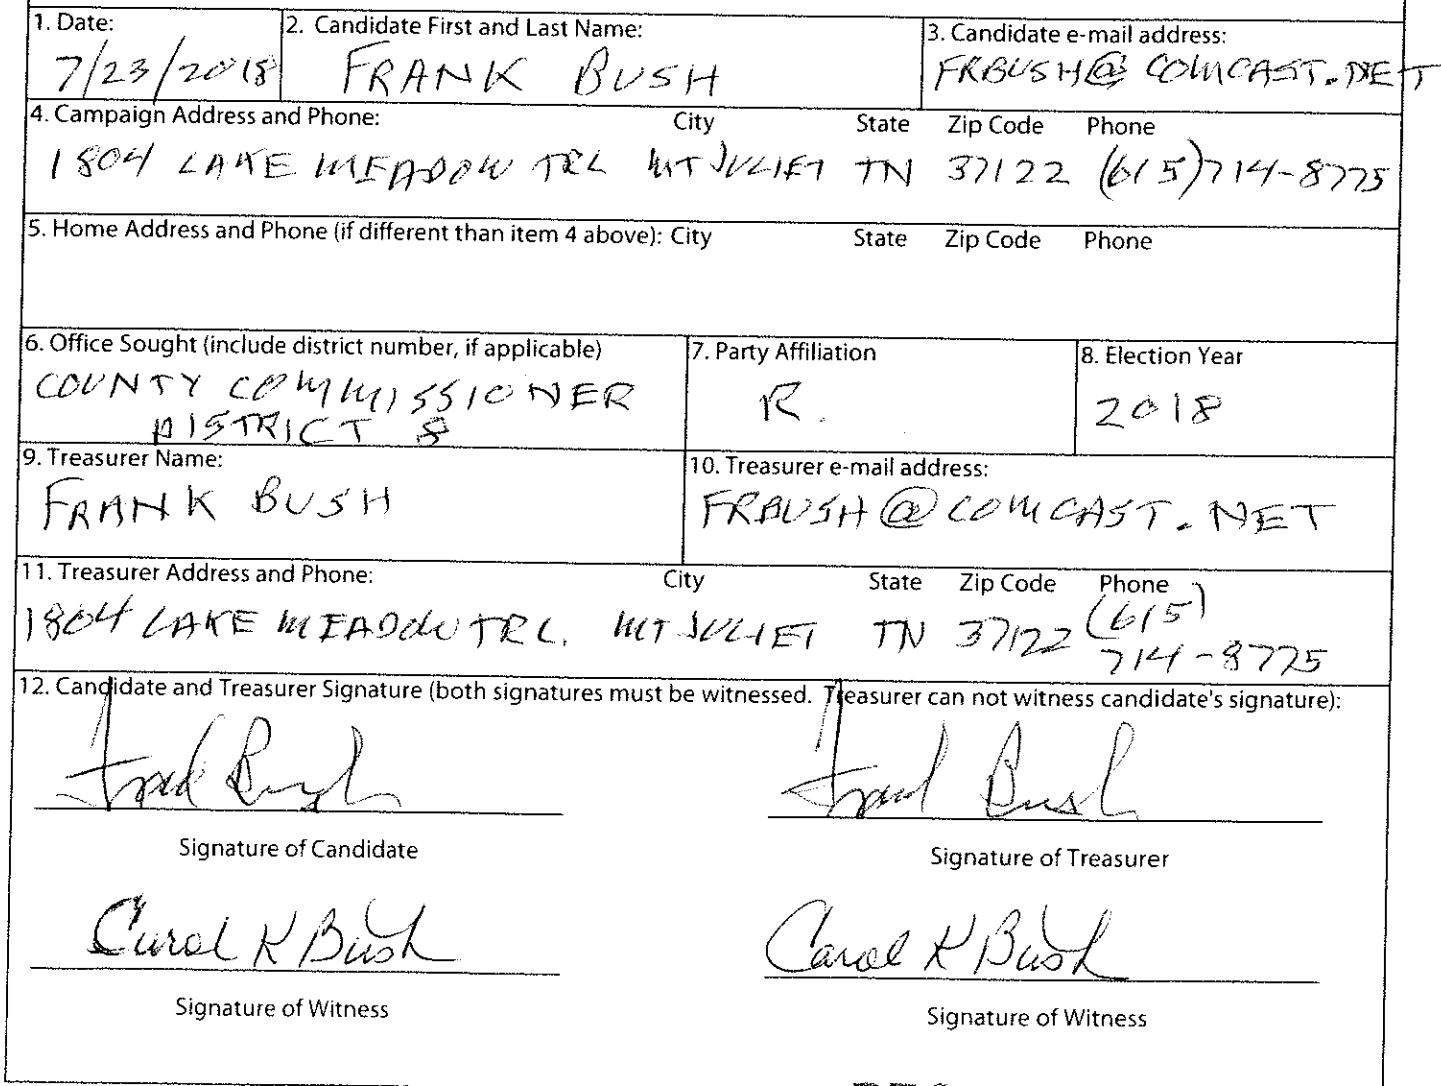 1. Date: 2. Candidate First and Last Name: 3. Candidate e-mail address:
7/23/2018 FRANK BUSH FRBUSH@COMCAST.NET
4. Campaign Address and Phone: City State Zip Code Phone
1804 LAKE MEADOW TRL MT JULIET TN 37122 (615)714-8775
5. Home Address and Phone (if different than item 4 above): City State Zip Code Phone
6. Office Sought (include district number, if applicable) 7. Party Affiliation 8. Election Year
COUNTY COMMISSIONER R. 2018
DISTRICT 8
9. Treasurer Name: 10. Treasurer e-mail address:
FRANK BUSH FRBUSH@COMCAST.NET
11. Treasurer Address and Phone: City State Zip Code Phone
1804 LAKE MEADOW TRL. MT JULIET TN 37122 (615)
714-8775
12. Candidate and Treasurer Signature (both signatures must be witnessed. Treasurer can not witness candidate's signature):
Frank Bush Frank Bush
Signature of Candidate Signature of Treasurer
Carol K Bush Carol K Bush
Signature of Witness Signature of Witness